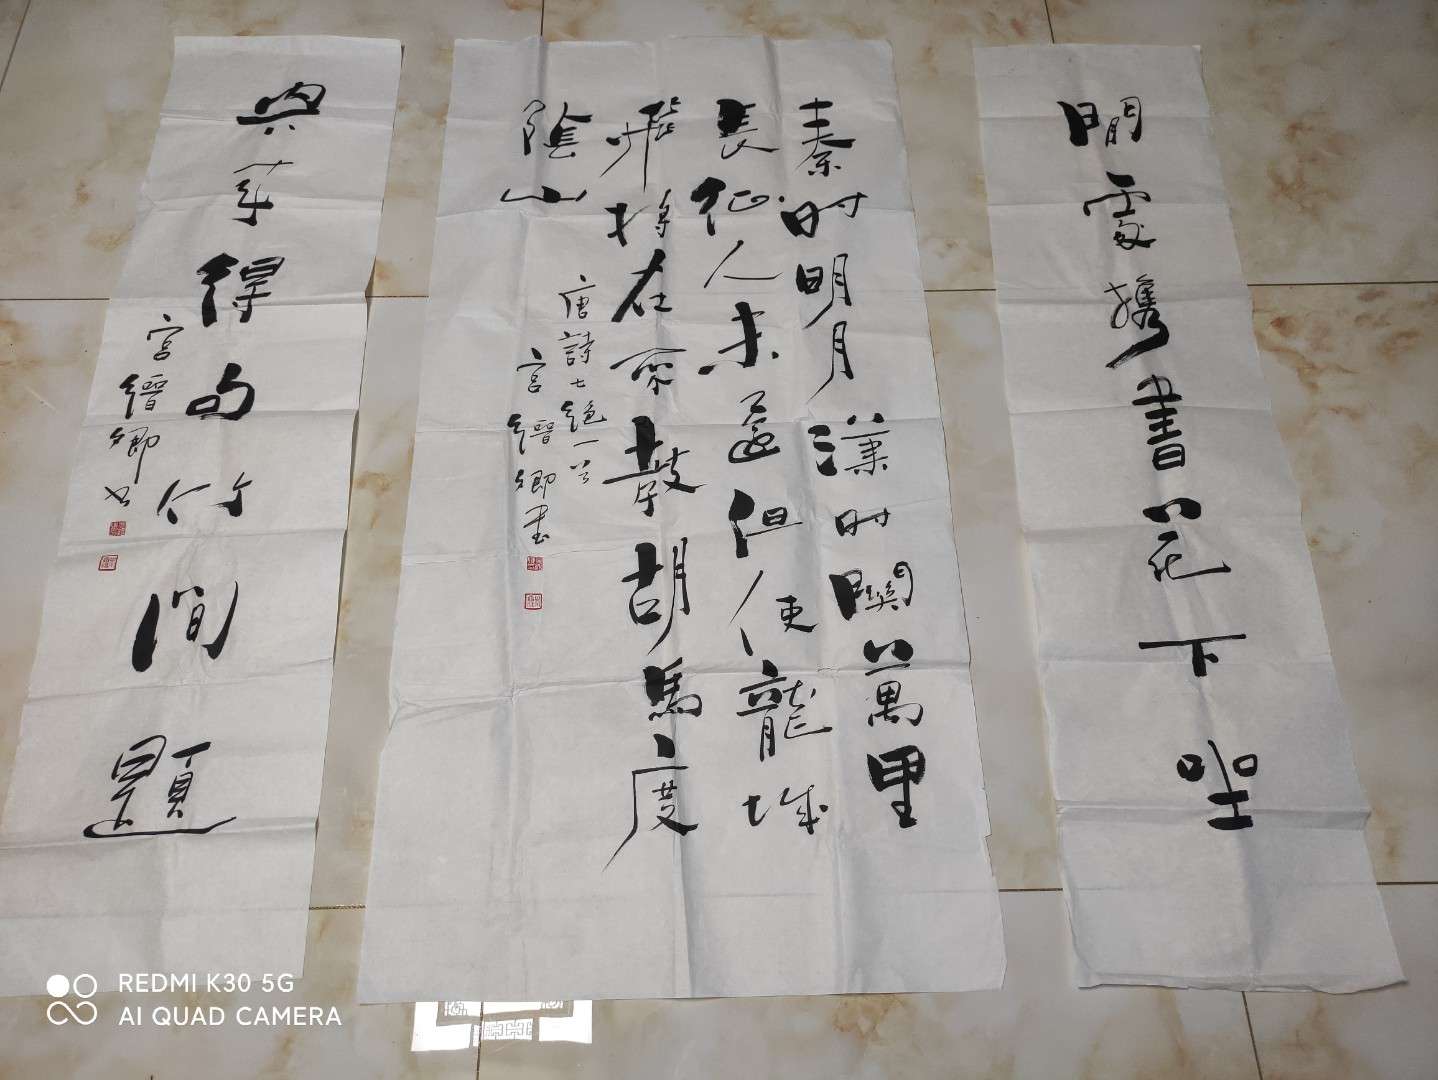 閒處携書花下坐
秦时明月漢时關萬里
長征人未還但使龍城
飛將在不教胡馬度
陰山
唐詩七絕一首
宫縉卿書
興来得句竹間題
宫縉卿书
REDMI K30 5G
AI QUAD CAMERA